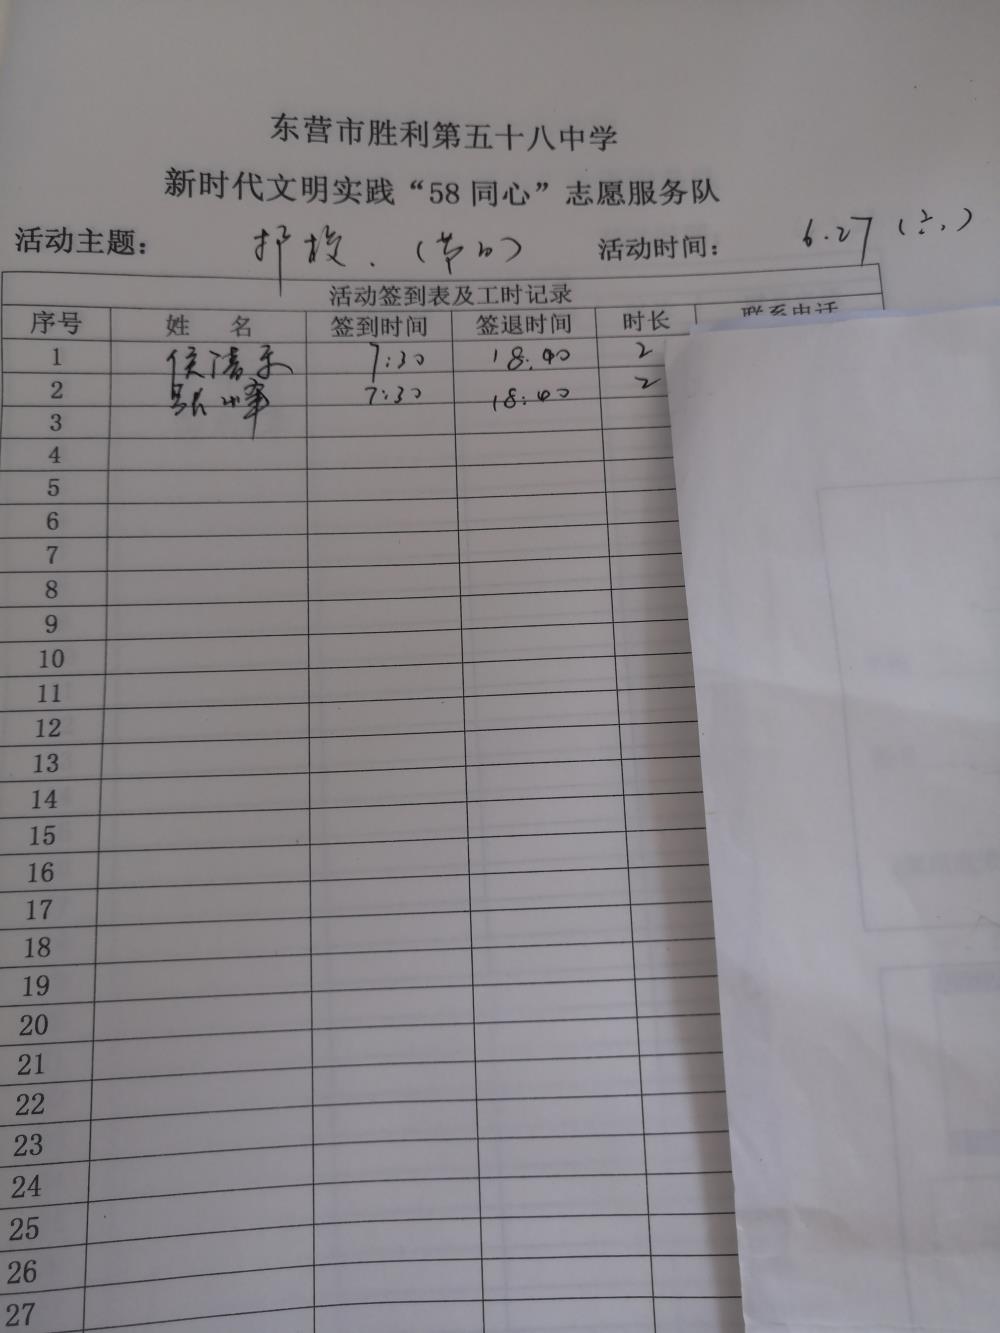 东营市胜利第五十八中学
新时代文明实践“58同心”志愿服务队
活动主题： 护校．（节日） 活动时间： 6.27（六）
活动签到表及工时记录
序号 姓 名 签到时间 签退时间 时长 联系电话
1 侯清 7:30 18:40 2
2 7:30 18:40 2
3
4
5
6
7
8
9
10
11
12
13
14
15
16
17
18
19
20
21
22
23
24
25
26
27